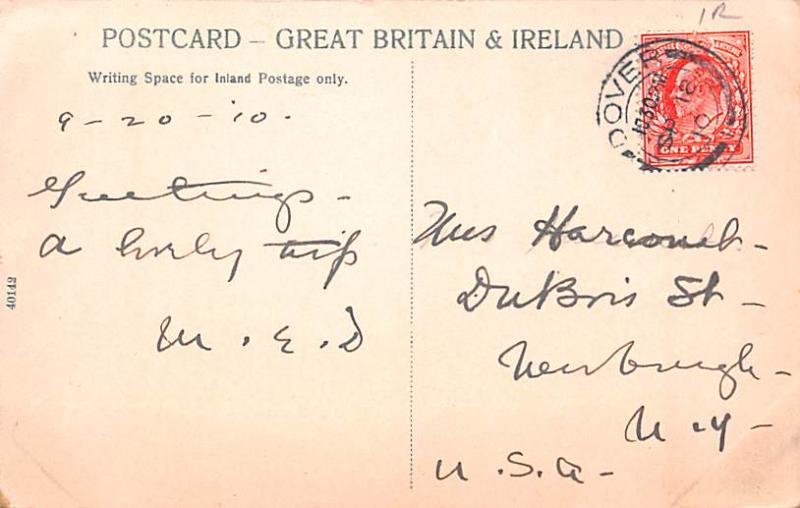 1R
POSTCARD – GREAT BRITAIN & IRELAND
Writing Space for Inland Postage only.
DOVER
10
ONE PENNY
9-20-'10.
Greetings –
a lovely trip
M. E. D
40142
Harcourt –
DuBois St –
Newburgh –
N. Y –
U. S. A –